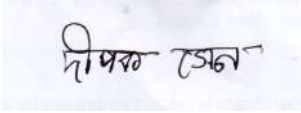 দীপক সেন